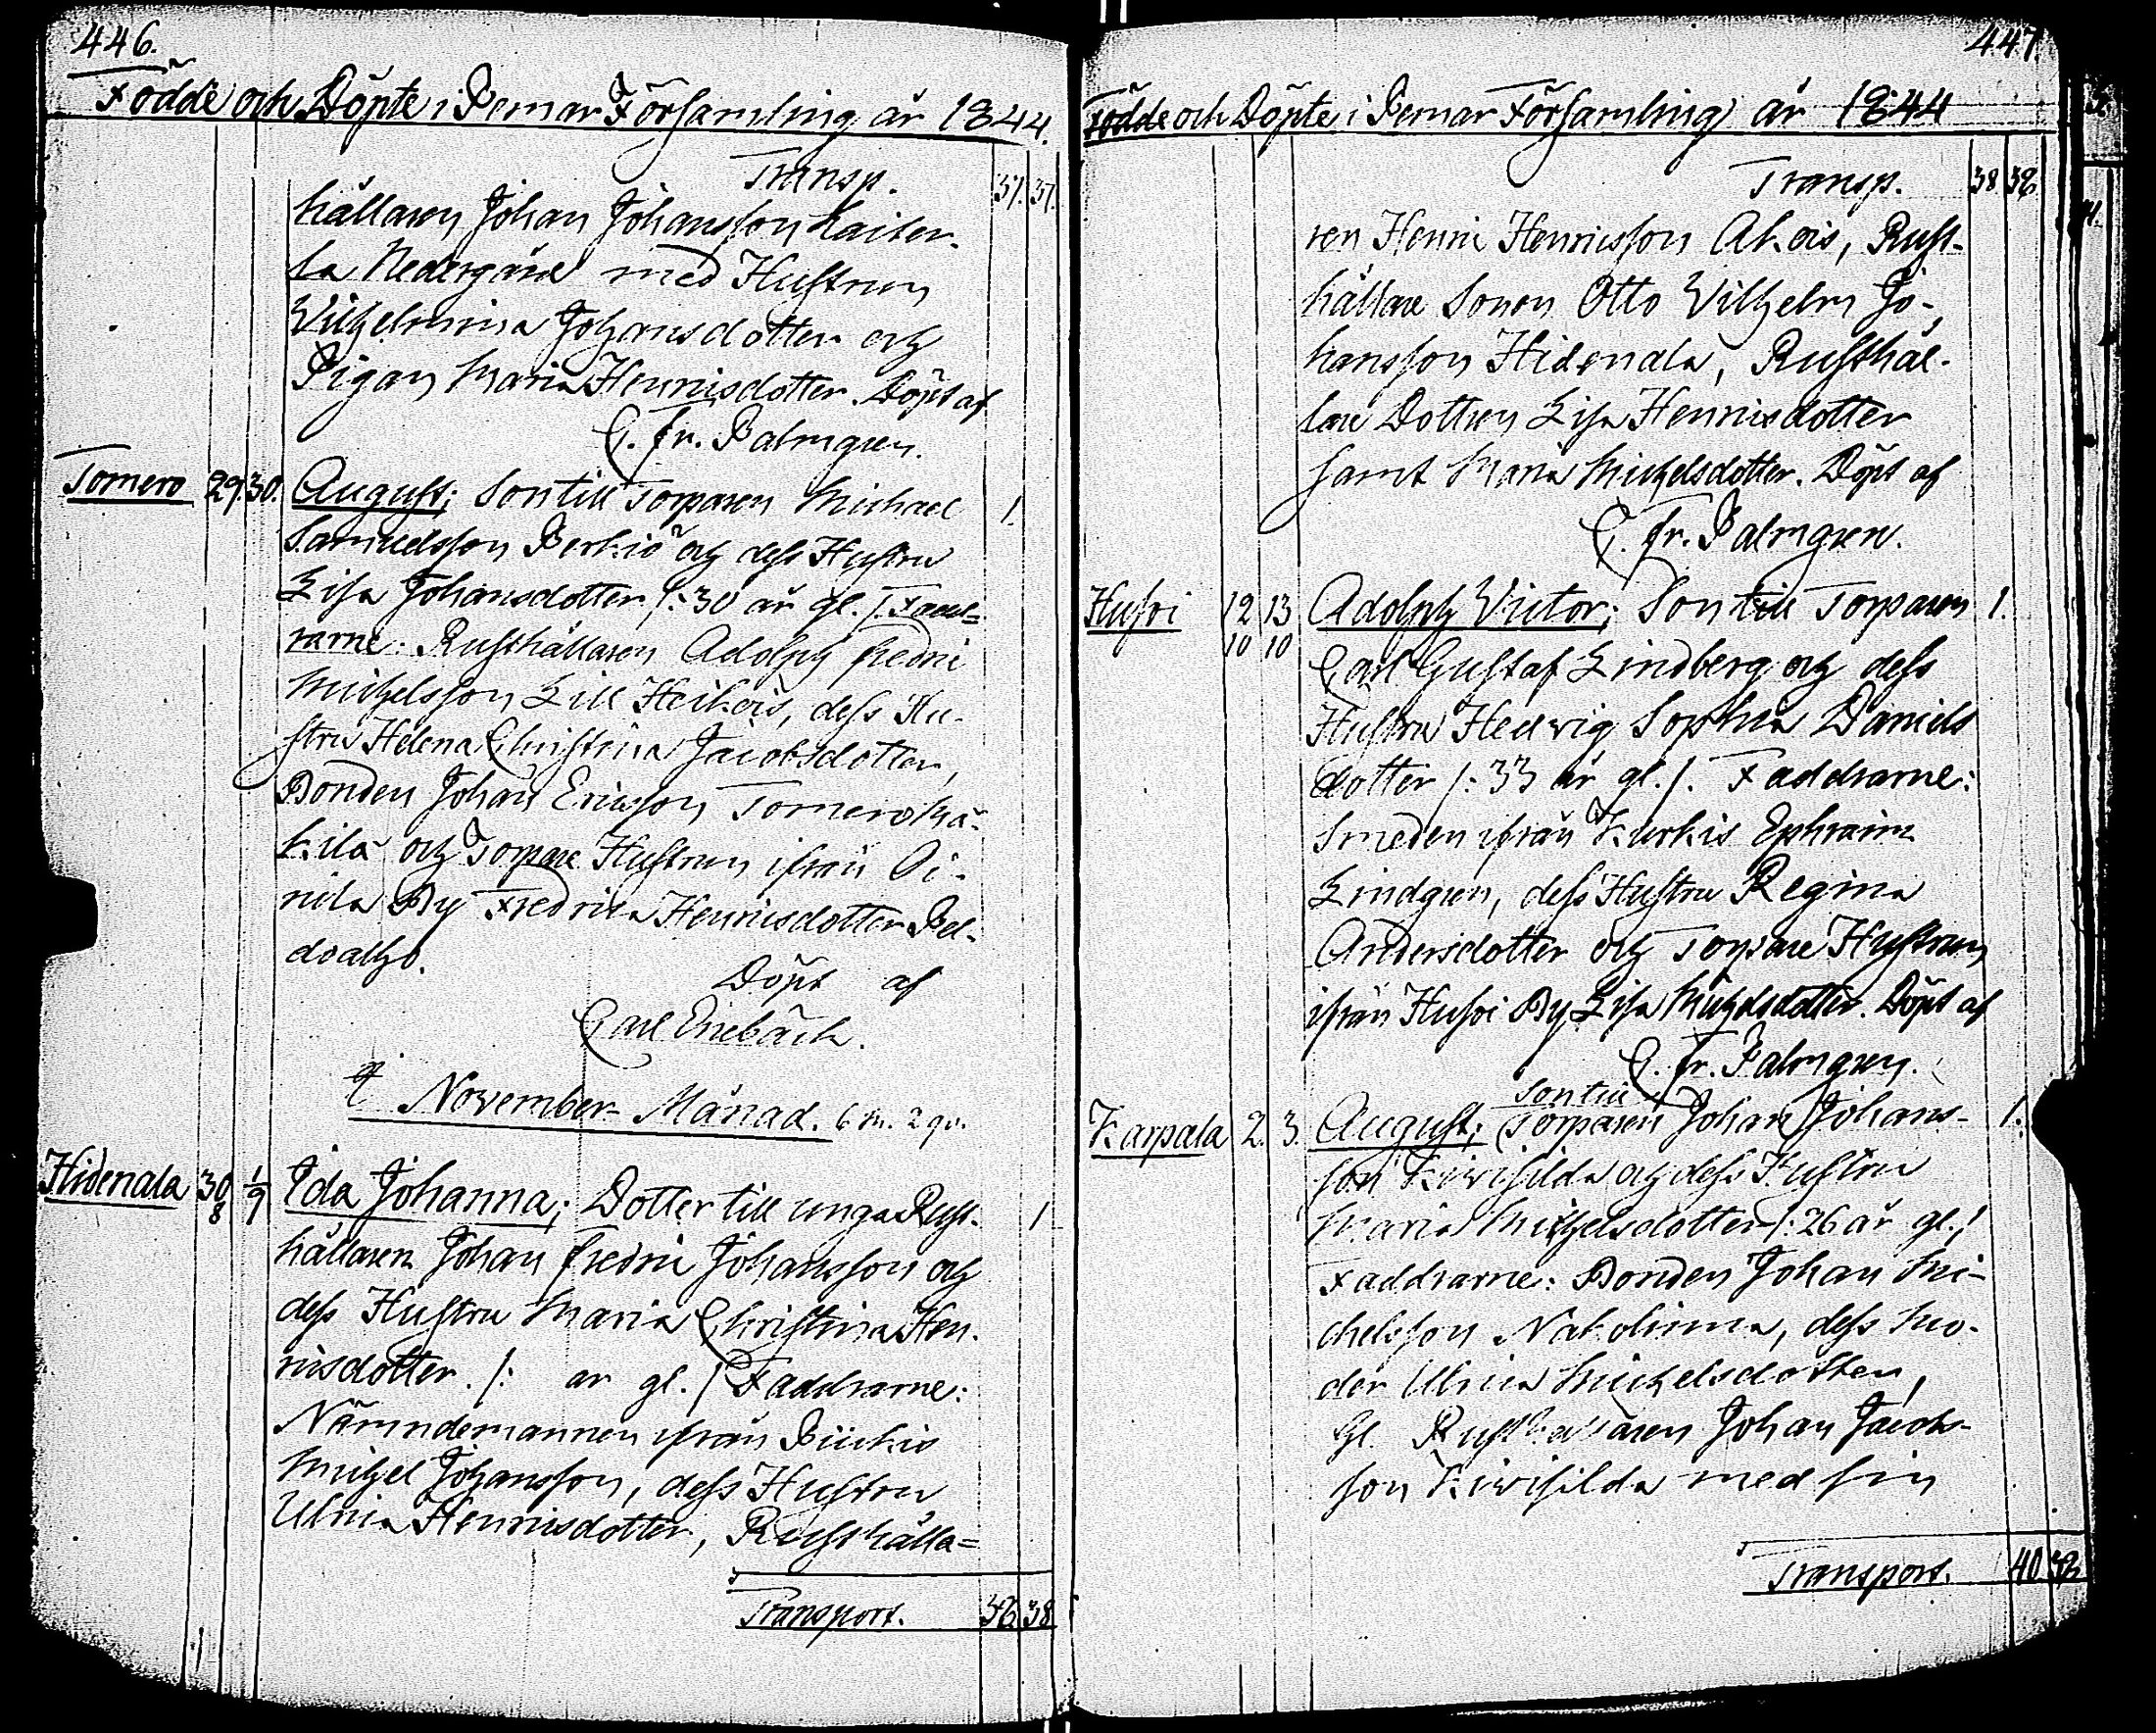 446.
Födde och Döpte i Pemar Församling år 1844.
Transp. 37. 37.
hållaren Johan Johansson Laiter-
la Nedergård med Hustrun
Vilhelmina Johansdotter och
Pigan Maria Henricsdotter. Döpt af
C. Fr. Palmgren.
Tomero 29. 30. August; Son till Torparen Michael 1.
Samuelsson Perkiö och dess Hustru
Lisa Johansdotter /: 30 år gl. /. Fadd=
rarne: Rusthållaren Adolph Fredric
Michelsson Lill Heikois, dess Hu-
stru Helena Christina Jacobsdotter,
Bonden Johan Ericsson Tomero Mä-
kilä och Torpare Hustrun ifrån Oi-
nila By Fredrica Henricsdotter Pel-
doalho.
Döpt af
Carl Enebäck.
November Månad. 6 m. 2 qv.
Hidenala 30/8 1/9 Ida Johanna; Dotter till unga Rust- 1
hållaren Johan Fredric Johansson och
dess Hustru Maria Christina Hen-
ricsdotter. /: år gl. / Faddrarne:
Nämndemannen ifrån
Michel Johansson, dess Hustru
Ulrica Henricsdotter, Rusthålla=
Transport. 38 38
447.
Födde och Döpte i Pemar Församling år 1844
Transp. 38 38
ren Henric Henricsson Akois, Rust-
hållare Sonen Otto Vilhelm Jo-
hansson Hidenala, Rusthål-
lare Dottren Lisa Henricsdotter
samt Maria Michelsdotter. Döpt af
C. Fr. Palmgren.
Husoi 12/10 13/10 Adolph Victor; Son till Torparen 1.
Carl Gustaf Lindberg och dess
Hustru Hedvig Sophia Daniels
dotter /: 33 år gl. /. Faddrarne:
Smeden ifrån Kurkis Ephraim
Lindgren, dess Hustru Regina
Andersdotter och Torpare Hustrun
ifrån Husoi By Lisa Michelsdotter. Döpt af
C. Fr. Palmgren.
Son till
Karpala 2. 3. August; Torparen Johan Johans- 1.
son Kivisilda och dess Hustru
Maria Michelsdotter /: 26 år gl. /
Faddrarne: Bonden Johan Mi-
chelsson Nakolinna, dess Mo-
der Ulrica Michelsdotter,
Gl. Rusthållaren Johan Jacobs-
son Kivisilda med sin
Transport. 40 38